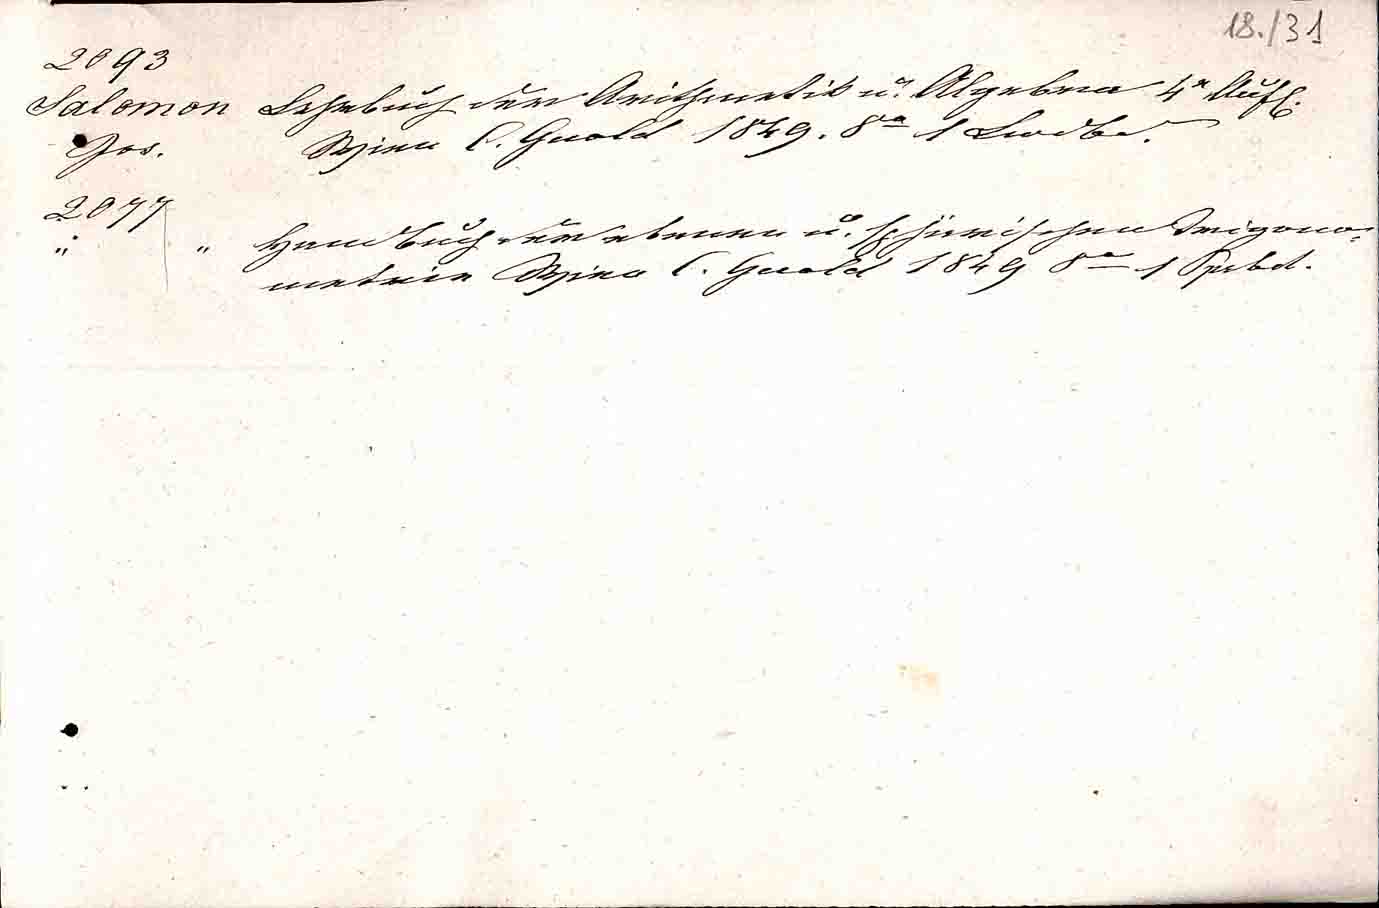 18./31
2093
Salomon Lehrbuch der Arithmetik u. Algebra 4e Aufl.
Jos. Wien C. Gerold 1849. 8° 1 Lwdbd.
2077
" " Handbuch der ebenen u. sphärischen Trigono-
metrie Wien C. Gerold 1849 8° 1 Ppbd.